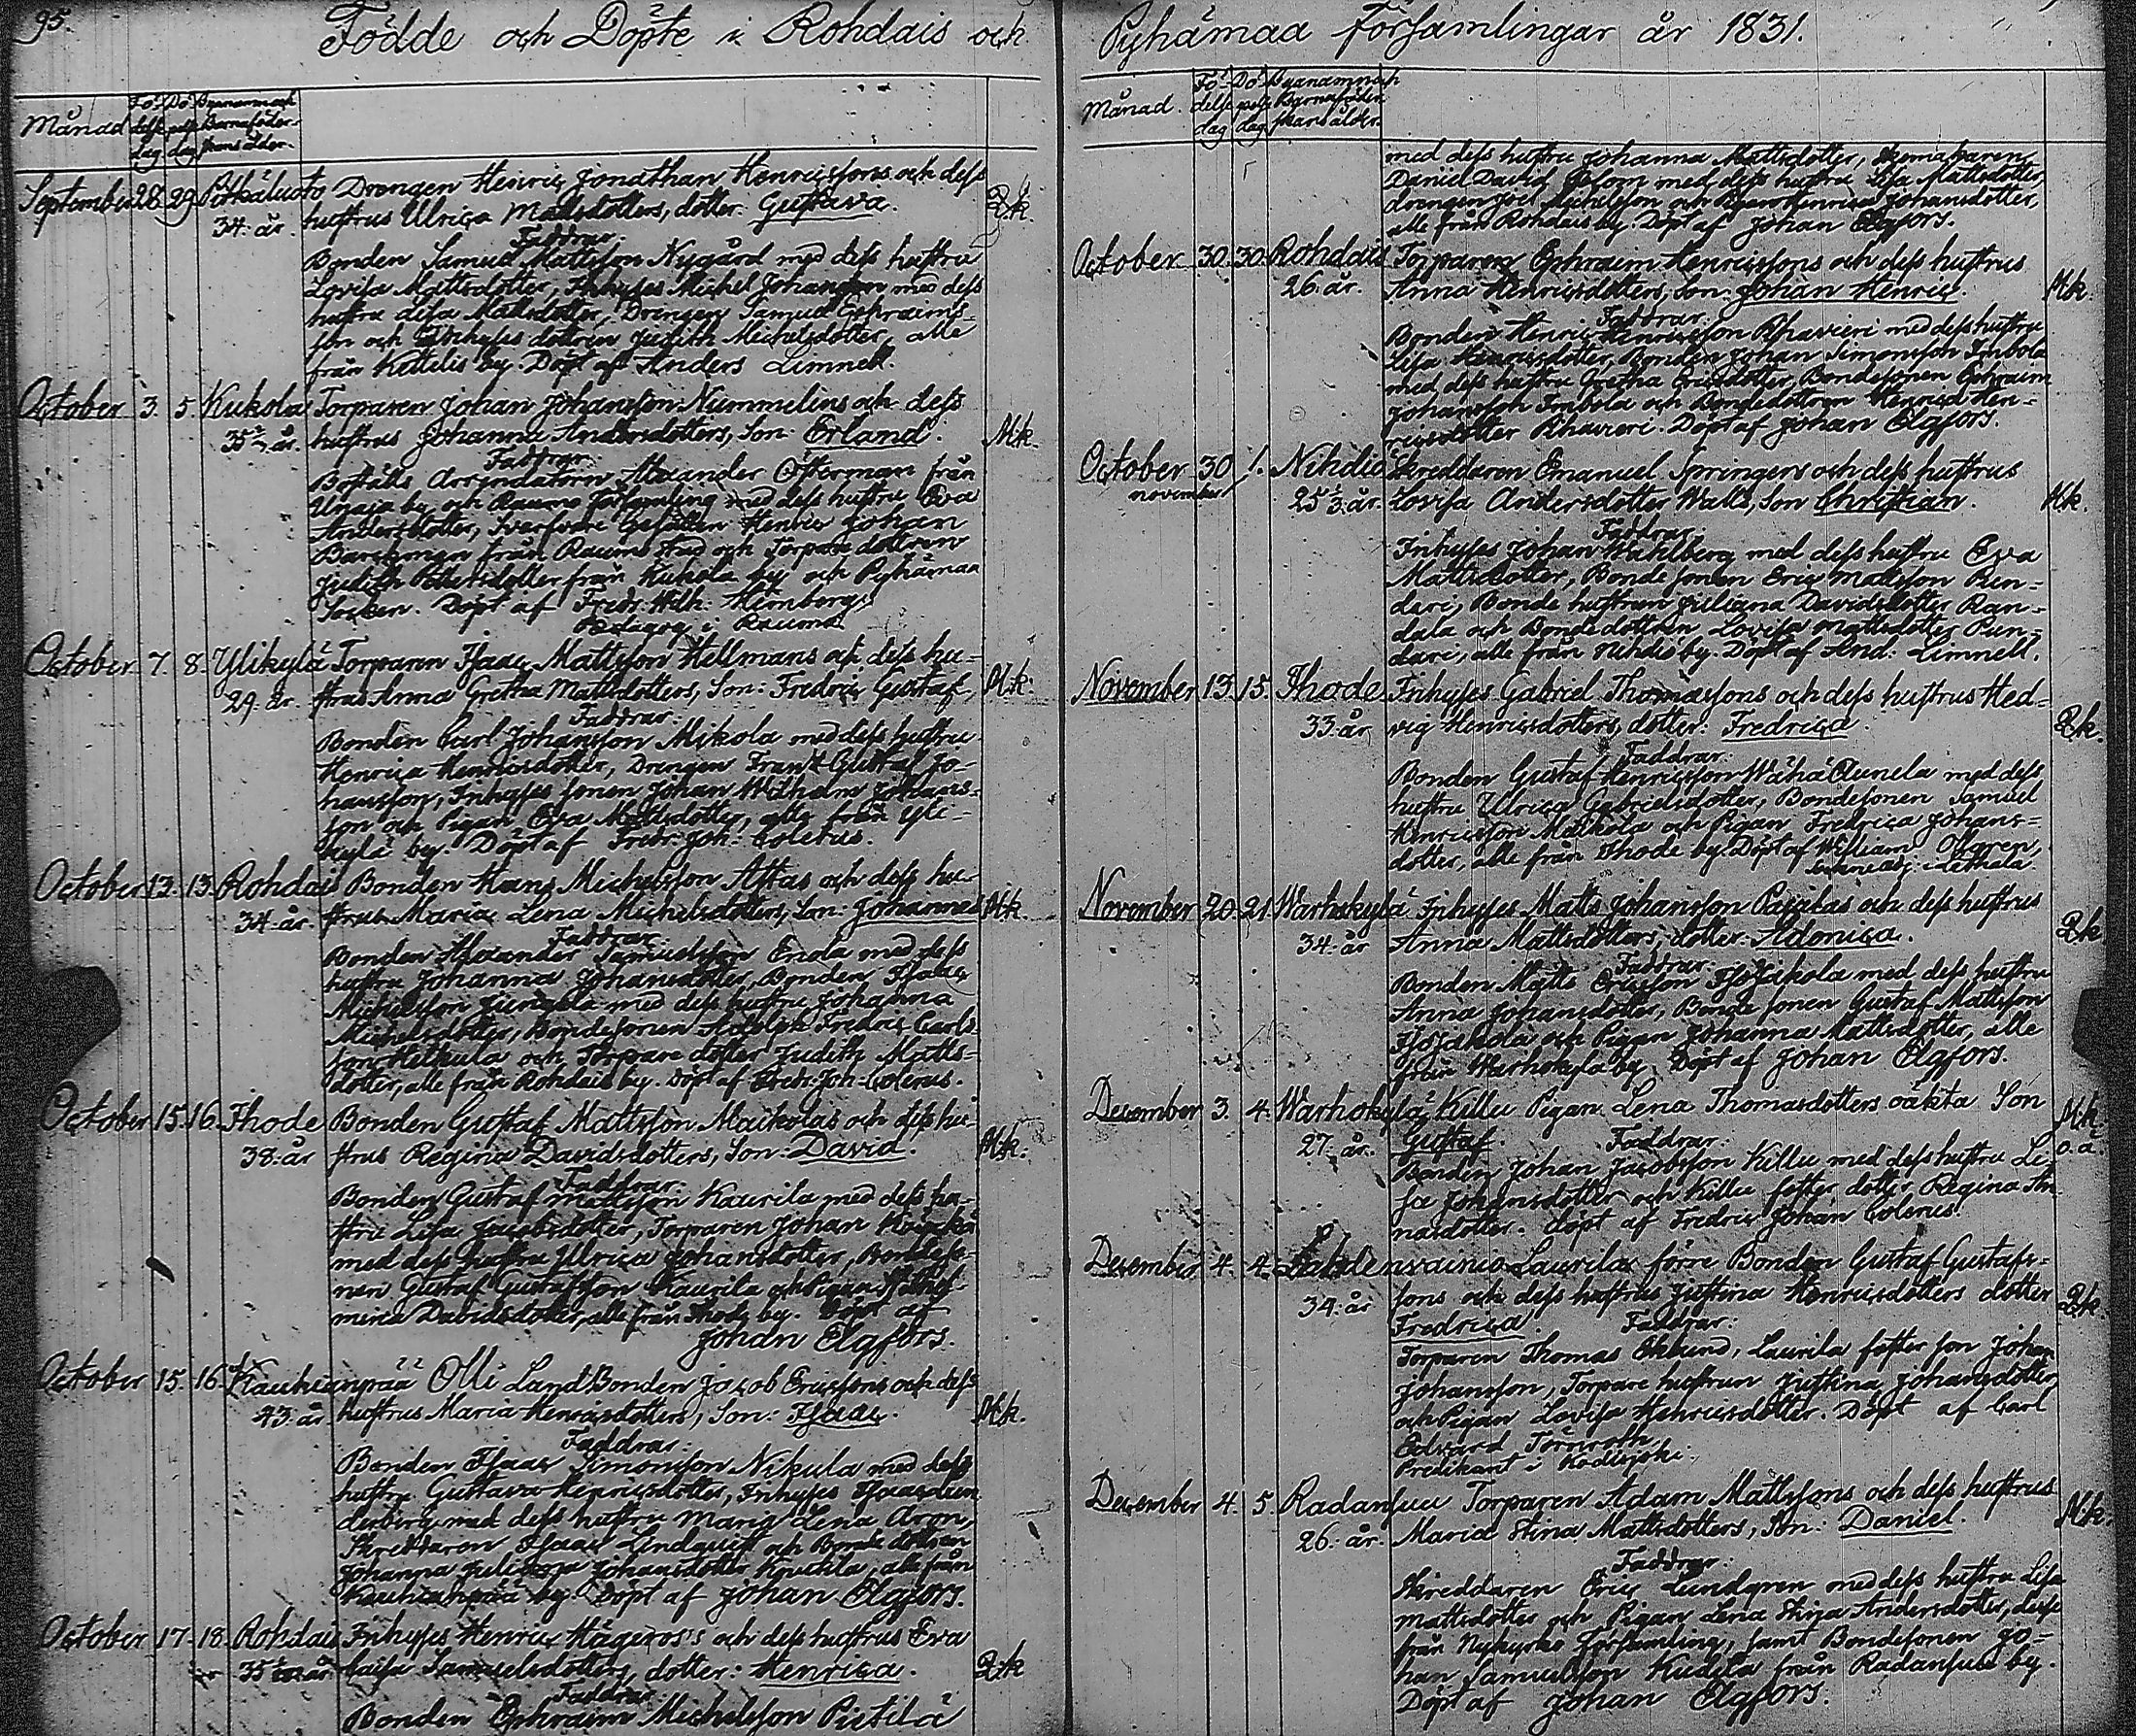 95.
Födde och Döpte i Rohdais och
Månad
Födelse dag
Döpelse dag
Byanamn och Barnaföderskans ålder.
September 28. 29. Pitkäluoto Drengen Henric Jonathan Henricssons och dess
34. år. hustrus Ulrica Mattsdotters, dotter: Gustava. Qk.
Faddrar
Bonden Samuel Mattsson Nygård med dess hustru
Lovisa Mattsdotter, Inhyses Michel Johansson med dess
hustru Lisa Mattsdotter, Drengen Samuel Ephraims-
son och Inhyses dottren Judith Michelsdotter, alle
från Kettelis by. Döpt af Anders Limnell.
October 3. 5. Kukola Torparen Johan Johansson Nummelins och dess
35 år. hustrus Johanna Andersdotters, Son: Erland. Mk.
Faddrar:
Boställs Arrendatorn Alexander Osterman från
Unaja by och Raumo Församling med dess hustru Eva
Andersdotter, Gesällen Henric Johan
från Raumo Stad och Torpare dottren
Judith från Kukola by och Pyhämaa
Socken. Döpt af Fredr. Wilh.
Pedagog i Raumo
October 7. 8. Ylikylä Torparen Isaac Mattsson Hellmans och dess hu-
29. år. strus Anna Gretha Mattsdotters, Son: Fredric Gustaf, Mk.
Faddrar:
Bonden Carl Johansson Mikola med dess hustru
Henrica Henricsdotter, Drengen Frans Gustaf Jo-
hansson, Inhyses sonen Johan Wilhelm Johans-
son och Pigan Eva Mattsdotter, alle från Yli-
kylä by. Döpt af Fredr. Joh. Colerus.
October 12. 13. Rohdais Bonden Hans Michelsson Astas och dess hu-
34. år. strus Maria Lena Michelsdotters, Son: Johannes Mk.
Faddrar:
Bonden Alexander Samuelsson Erola med dess
hustru Johanna Johansdotter, Bonden Isaac
Michelsson med dess hustru Johanna
Michelsdotter, Bondesonen Adolph Fredric Carls-
son och Torpare dotter Judith Matts-
dotter, alle från Rohdais by. Döpt af Fredr. Joh. Colerus.
October 15. 16. Ihode Bonden Gustaf Mattsson Maikolas och dess hu-
38. år strus Regina Davidsdotters, Son: David. Mk.
Faddrar:
Bonden Gustaf Mattsson Kaurila med dess hu-
stru Lisa Jacobsdotter, Torparen Johan
med dess hustru Ulrica Johansdotter, Bondeso-
nen Gustaf Gustafsson Kaurila och Pigan Wilhel-
mina Davidsdotter, alle från Ihode by. Döpt af
Johan Elgfors.
October 15. 16. Kauhianpää Olli LandBonden Jacob Ericssons och dess
43. år. hustrus Maria Henricsdotters, Son: Isaac. Mk.
Faddrar:
Bonden Isaac Simonsson Nikula med dess
hustru Gustava Henricsdotter, Inhyses Isaac
med dess hustru Maria Lena Aron,
Skreddaren Isaac Lindquist och Bonde dottren
Johanna Juliana Johansdotter alle från
Kauhianpää by. Döpt af Johan Elgfors.
October 17. 18. Rohdais Inhyses Henric Hägeros's och dess hustrus Eva
35 år Caisa Samuelsdotters, dotter: Henrica. Qk
Faddrar
Bonden Ephraim Michelsson Pietilä
Pyhämaa Församlingar år 1831.
Månad.
Födelse dag
Döpelse dag
Byanamn och Barnaföderskans ålder.
med dess hustru Johanna Mattsdotter,
Daniel David med dess hustru Lisa Mattsdotter,
drengen Joel Michelsson och Pigan Henrica Johansdotter,
alle från Rohdais by. Döpt af Johan Elgfors.
October 30. 30. Rohdais Torparen Ephraim Henricssons och dess hustrus
26. år. Anna Henricsdotters, Son: Johan Henric. Mk.
Faddrar:
Bonden Henric Henricsson Rihavieri med dess hustru
Lisa Henricsdotter, Bonden Johan Simonsson Imbola
med dess hustru Gretha Ericsdotter, Bondesonen Ephraim
Johansson Imbola och Bondedottren Henrica Hen-
ricsdotter Rihavieri. Döpt af Johan Elgfors.
October 30 1. Nihdiö Skreddaren Emanuel Springers och dess hustrus
november
25 1/3. år. Lovisa Andersdotter Walls, Son Christian. Mk.
Faddrar
Inhyses Johan Wahlberg med dess hustru Eva
Mattsdotter, Bonde sonen Eric Mattsson Pun-
dari, Bonde hustrun Juliana Davidsdotter Ran-
dala och Bondedottren Lovisa Mattsdotter Pun-
dari, alle från Nihdiö by. Döpt af And: Limnell.
November 13. 15. Ihode Inhyses Gabriel Thomassons och dess hustrus Hed-
33. år vig Henricsdotters, dotter: Fredrica. Qk.
Faddrar:
Bonden Gustaf Henricsson Wähä Aunela med dess
hustru Ulrica Gabrielsdotter, Bondesonen Samuel
Henricsson Maikola och Pigan Fredrica Johans-
dotter, alle från Ihode by. Döpt af William
i Letala.
November 20. 21. Warhokylä Inhyses Matts Johansson Pajukas och dess hustrus
34. år Anna Mattsdotters, dotter: Adonica. Qk
Faddrar:
Bonden Matts Ericsson IsoJakola med dess hustru
Anna Johansdotter, Bonde sonen Gustaf Mattsson
IsoJakola och Pigan Johanna Mattsdotter, alle
från Warhokyla by. Döpt af Johan Elgfors.
December 3. 4. Warhokylä Killu Pigan Lena Thomasdotters oäkta Son Mk.
27. år. Gustaf. Faddrar: o.ä.
Bonden Johan Jacobsson Killu med dess hustru Li-
sa Johansdotter och Killu foster dotter Regina An-
nasdotter. Döpt af Fredric Johan Colerus.
December 4. 4. Lahdenvainio Laurila förre Bonden Gustaf Gustafs-
34. år sons och dess hustrus Justina Henricsdotters dotter Qk.
Fredrica. Faddrar:
Torparen Thomas Eklund, Laurila foster son Johan
Johansson, Torpare hustrun Justina Johansdotter
och Pigan Lovisa Henricsdotter. Döpt af Carl
Edvard Törnroth
Predikant i Kodisjoki.
December 4. 5. Radansuu Torparen Adam Mattssons och dess hustrus
26. år. Maria Stina Mattsdotters, Son: Daniel. Mk.
Faddrar:
Skreddaren Eric Lundgren med dess hustru Lisa
Mattsdotter och Pigan Lena Stina Andersdotter, desse
från Nykyrko Församling, samt Bondesonen Jo-
han Samuelsson från Radansuu by.
Döpt af Johan Elgfors.